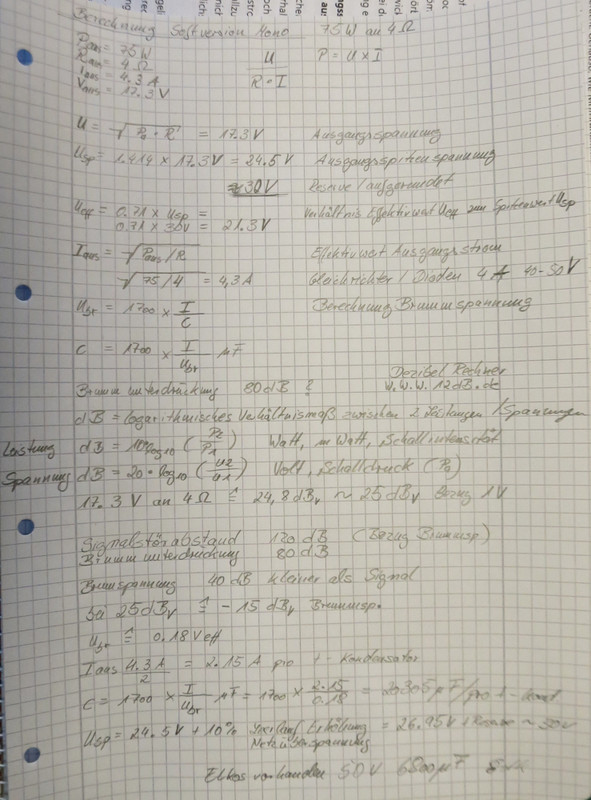 Berechnung Softversion Mono 75W an 4Ω
Paus = 75W
Raus = 4Ω U P = U x I
Iaus = 4.3 A R · I
Vaus = 17.3 V
U = √Pa · R = 17.3V Ausgangsspannung
Usp = 1.414 x 17.3V = 24.5V Ausgangsspitzenspannung
≈30V Reserve/aufgerundet
Ueff = 0.71 x Usp = Verhältnis Effektivwert Ueff zum Spitzenwert Usp
0.71 x 30V = 21.3V
Iaus = √Paus/R Effektivwert Ausgangsstrom
√75/4 = 4,3A Gleichrichter / Dioden 4A 40-50V
Ubr = 1700 x I/C Berechnung Brummspannung
C = 1700 x I/Ubr µF
Dezibel Rechner
Brumm unterdrückung 80dB ? W.W.W. 12dB.de
dB = logarithmisches Verhältnismaß zwischen 2 Leistungen / Spannungen
Leistung dB = 10·log10 (P2/P1) Watt, mWatt, Schallintensität
Spannung dB = 20 · log10 (U2/U1) Volt, Schalldruck (Pa)
17.3 V an 4Ω ≙ 24,8 dBv ~ 25dBv Bezug 1V
Signalstörabstand 120 dB (Bezug Brummsp)
Brumm unterdrückung 80 dB
Brumspannung 40 dB kleiner als Signal
bei 25dBv ≙ -15 dBv Brummsp.
Ubr ≙ 0.18Veff
Iaus 4.3A/2 = 2.15 A pro + - Kondensator
C = 1700 x I/Ubr µF = 1700 x 2.15/0.18 = 20305µF/pro + -
Usp = 24.5V + 10% Leerlauf Erhöhung = 26.95V + Reserve ~ 30V
Netzüberspannung
Elkos vorhanden 50V 6800µF